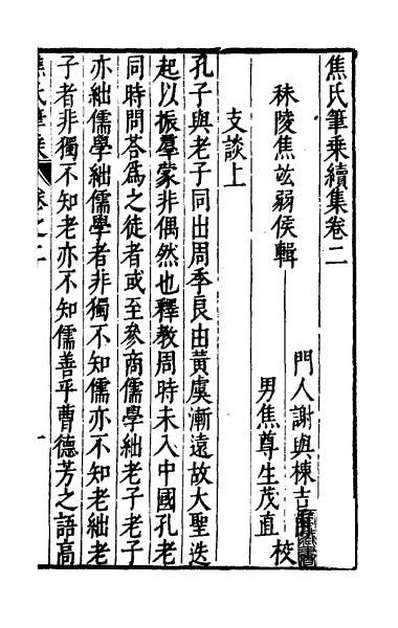 焦氏筆乘續集卷二
秣陵焦竑弱侯輯
門人謝與棟吉甫
男焦尊生茂直 校
支談上
孔子與老子同出周季良由黃虞漸遠故大聖迭
起以振羣蒙非偶然也釋教周時未入中國孔老
同時問荅爲之徒者或至參商儒學絀老子老子
亦絀儒學絀儒學者非獨不知儒亦不知老絀老
子者非獨不知老亦不知儒善乎曹德芳之語高